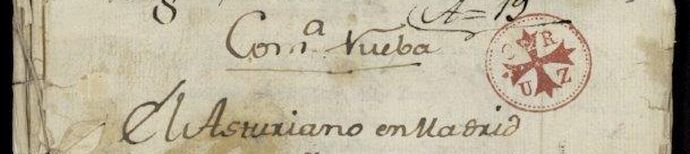 8 A=19
Comª Nueba
CRUZ
El Asturiano en Madrid